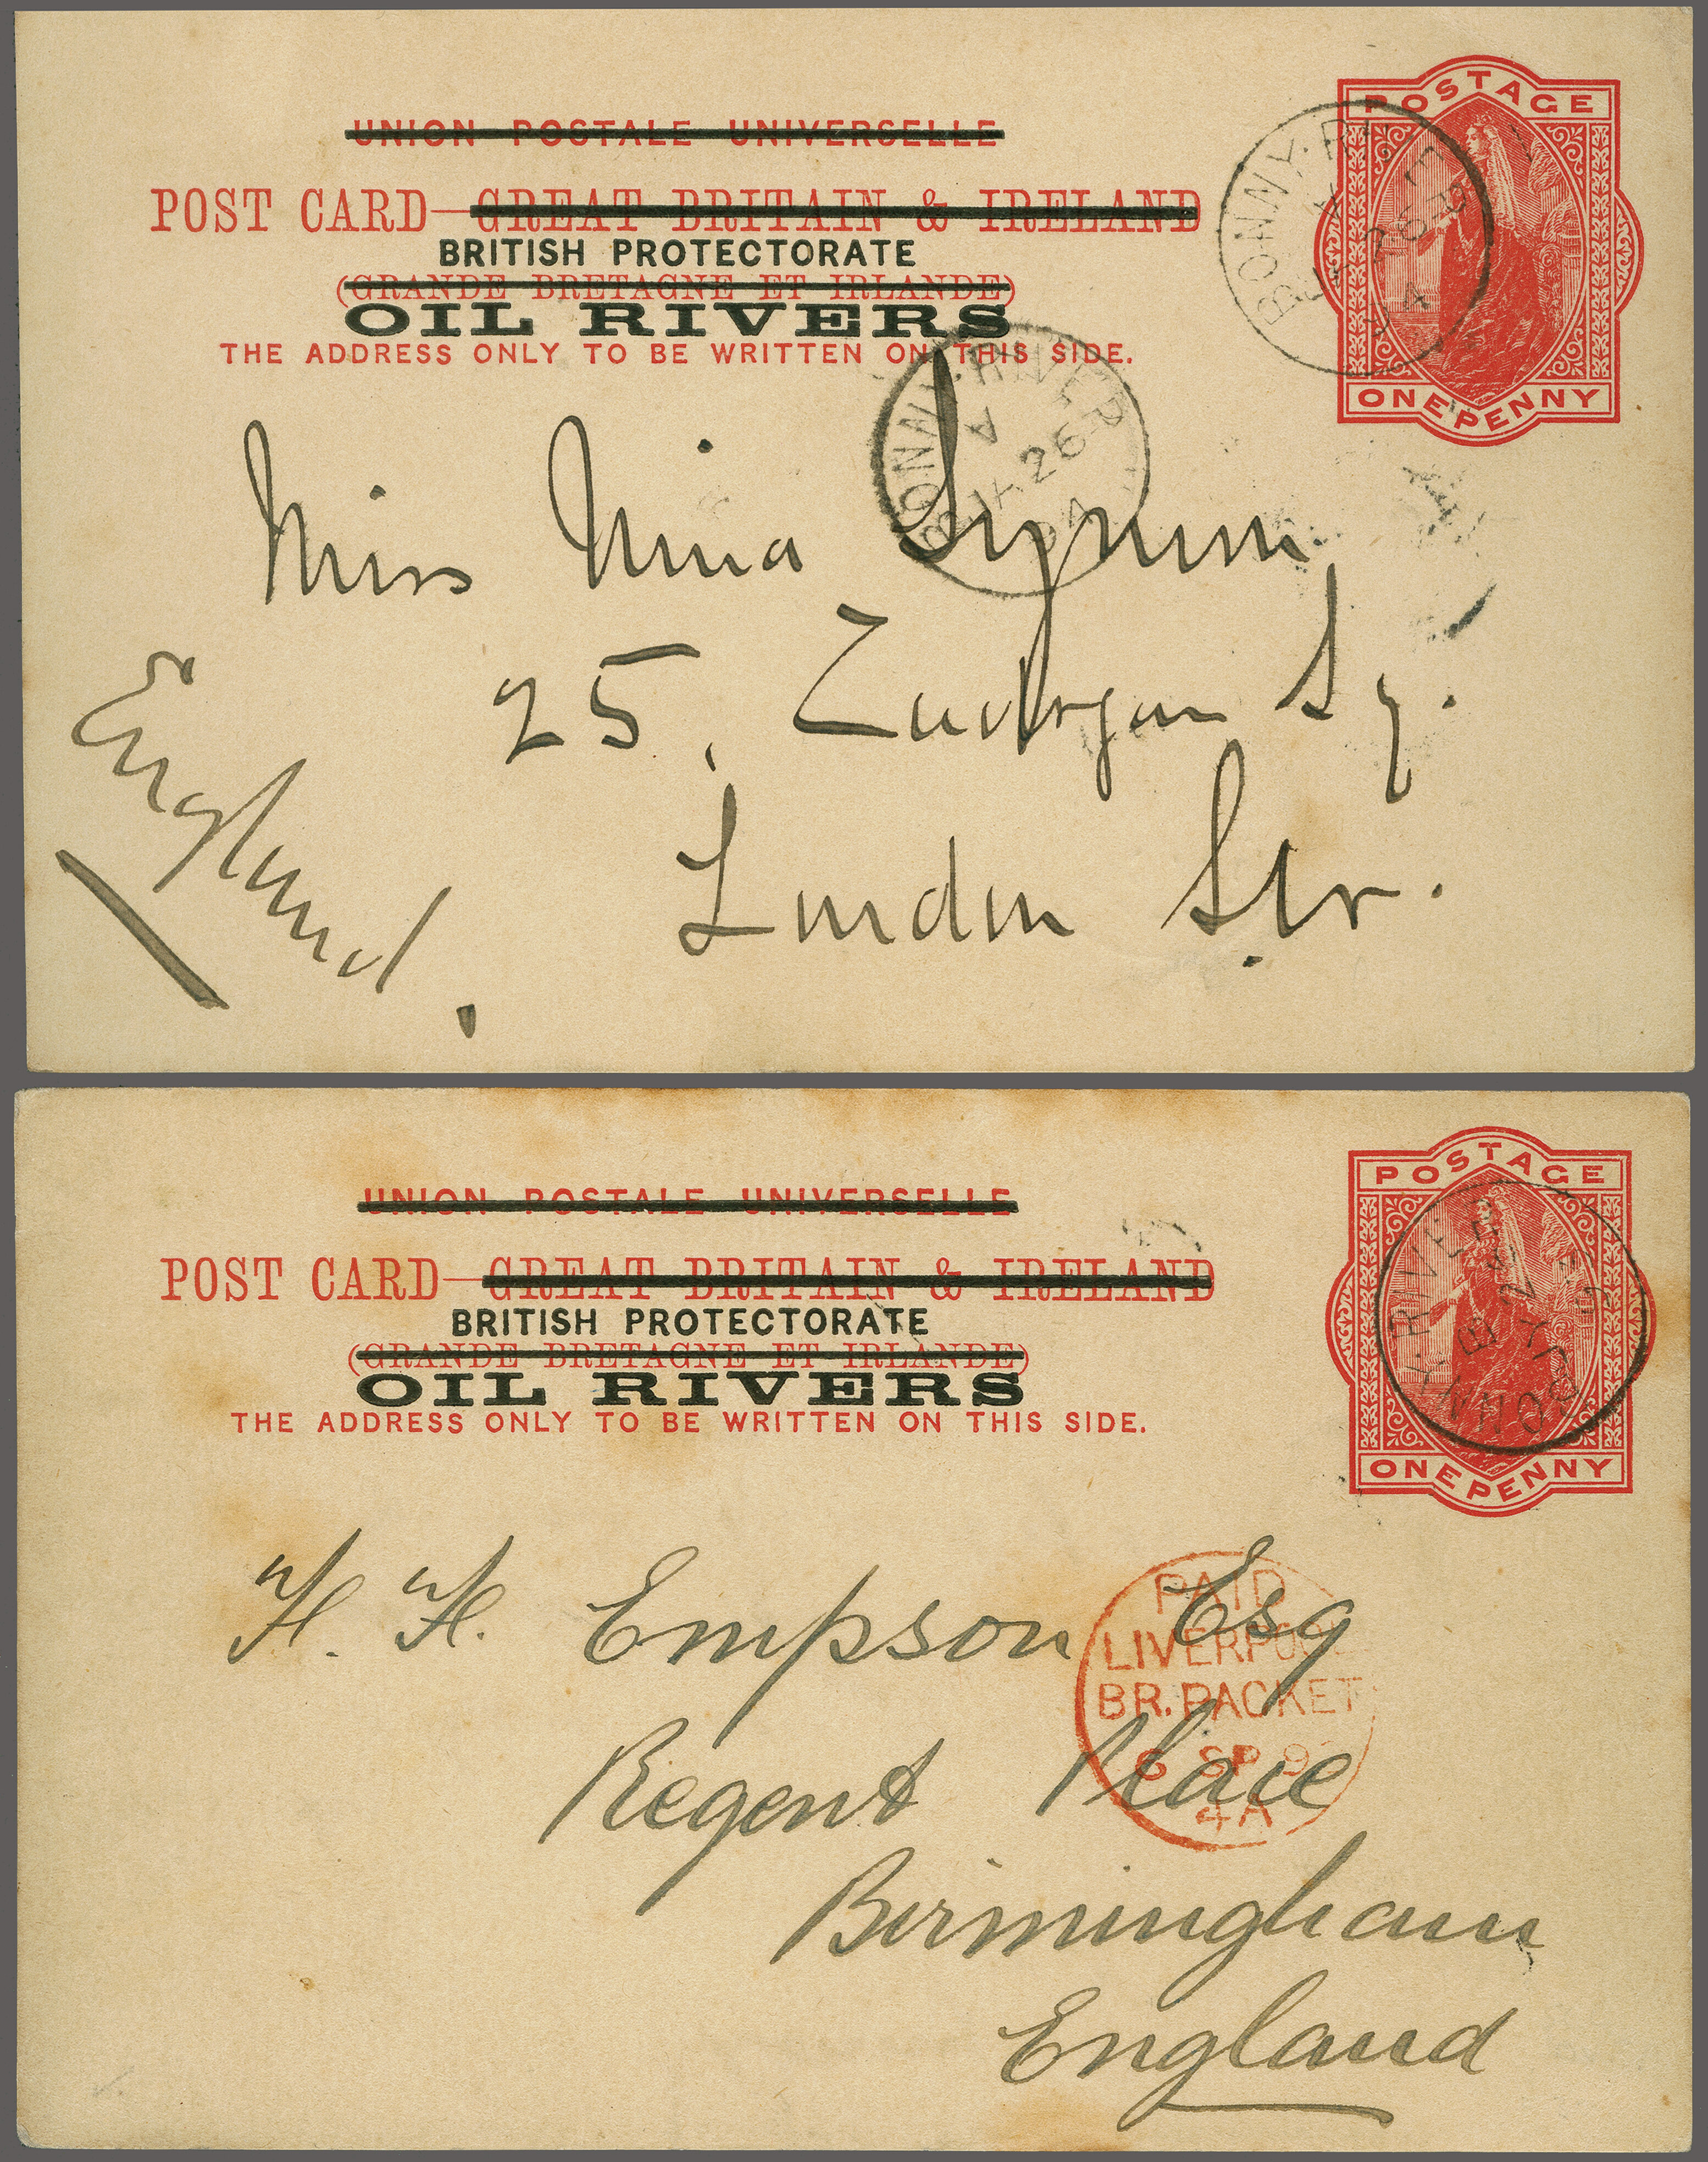 UNION POSTALE UNIVERSELLE
POSTAGE
POST CARD—GREAT BRITAIN & IRELAND
BRITISH PROTECTORATE
(GRANDE BRETAGNE ET IRLANDE)
OIL RIVERS
THE ADDRESS ONLY TO BE WRITTEN ON THIS SIDE.
ONE PENNY
BONNY. RIVER
A
26
94
Miss Nina
25, Sq.
London
England.
UNION POSTALE UNIVERSELLE
POSTAGE
POST CARD—GREAT BRITAIN & IRELAND
BRITISH PROTECTORATE
(GRANDE BRETAGNE ET IRLANDE)
OIL RIVERS
THE ADDRESS ONLY TO BE WRITTEN ON THIS SIDE.
ONE PENNY
RIVER
H. H. Empson Esq
Regent Place
Birmingham
England
PAID
LIVERPOOL
BR. PACKET
6 SP 9
4A